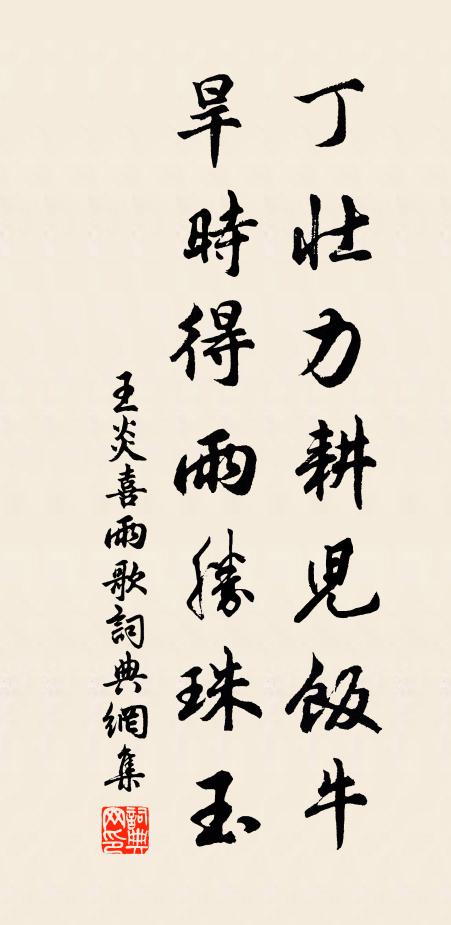 丁壯力耕兒飯牛
旱時得雨勝珠玉
王炎喜雨歌詞典網集
詞典網印